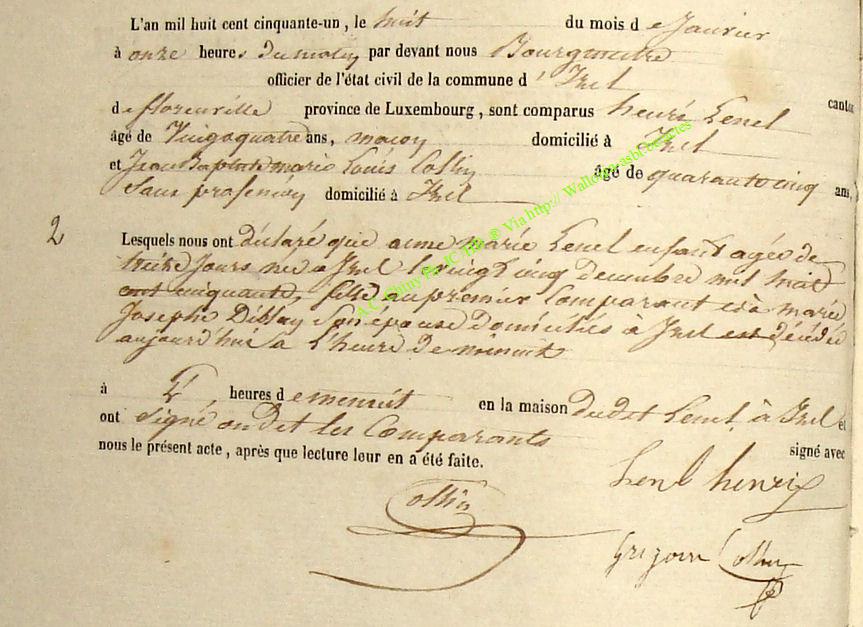 L'an mil huit cent cinquante-un, le huit du mois de Janvier
à onze heures du matin par devant nous Bourgmestre
officier de l'état civil de la commune d'Izel canton
de florenville province de Luxembourg, sont comparus henri Lenel
âgé de Vingtquatre ans, maçon domicilié à Izel
et Jean Baptiste marie Louis Collin âgé de quarantecinq ans,
Sans profession domicilié à Izel
2 Lesquels nous ont déclaré que anne marie Lenel enfant agée de
treize Jours née a Izel le vingt cinq decembre mil huit
cent cinquante, fille du premier Comparant et à marie
Josephe Son épouse Domiciliés à Izel est décédée
aujourd'hui a l'heure de minuit
à heures de menuit en la maison dudit Lenel à Izel et
ont Signé les Comparants signé avec
nous le présent acte, après que lecture leur en a été faite.
Lenel henri
Collin
Collin
A.C. Chiny Via http:// Wallonia